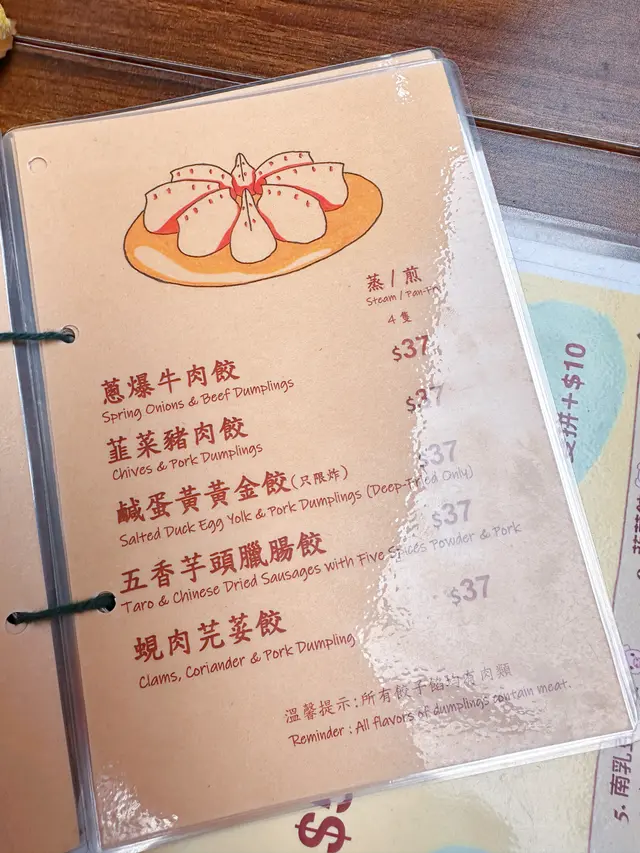 蒸 / 煎
Steam / Pan-Fr
4 隻
蔥爆牛肉餃 $37
Spring Onions & Beef Dumplings
韮菜豬肉餃 $37
Chives & Pork Dumplings
鹹蛋黃黃金餃(只限炸) $37
Salted Duck Egg Yolk & Pork Dumplings (Deep-Fried Only)
五香芋頭臘腸餃 $37
Taro & Chinese Dried Sausages with Five Spices Powder & Pork
蜆肉芫荽餃 $37
Clams, Coriander & Pork Dumpling
溫馨提示:所有餃子餡均含肉類
Reminder : All flavors of dumplings contain meat.
拼+$10
5. 南乳